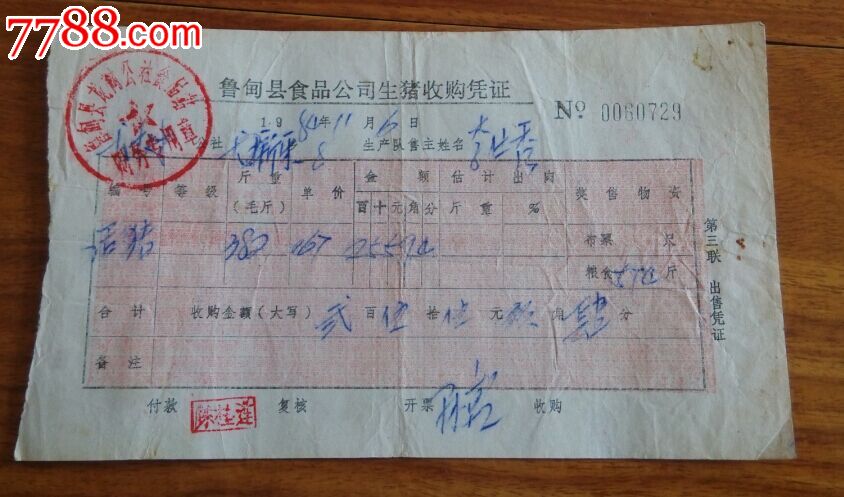 7788.com
鲁甸县食品公司生猪收购凭证
Nº 0060729
1984年11月6日
公社 生产队售主姓名
编号 等级 斤重(毛斤) 单价 金额 百十元角分 估计出肉 斤重 % 奖售物资
活猪 382 067 25594 布票 尺
粮食 斤
合计 收购金额(大写) 贰百伍拾伍元玖角肆分
备注
付款 复核 开票 收购
陈桂莲
第三联 出售凭证